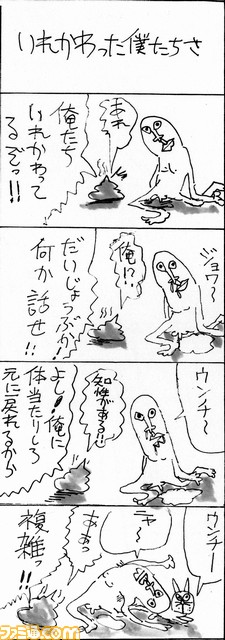 いれかわった僕たちさ
あれ
俺たち
いれかわって
るぞっ!!
ジョワ〜
俺!?
だいじょうぶか
何か話せ!!
ウンチ〜
知性がある!!
よし!俺に
体当たりしろ
元に戻れるから
ウンチー
ニャ〜
ああっ
複雑っ!!
ファミ通.com